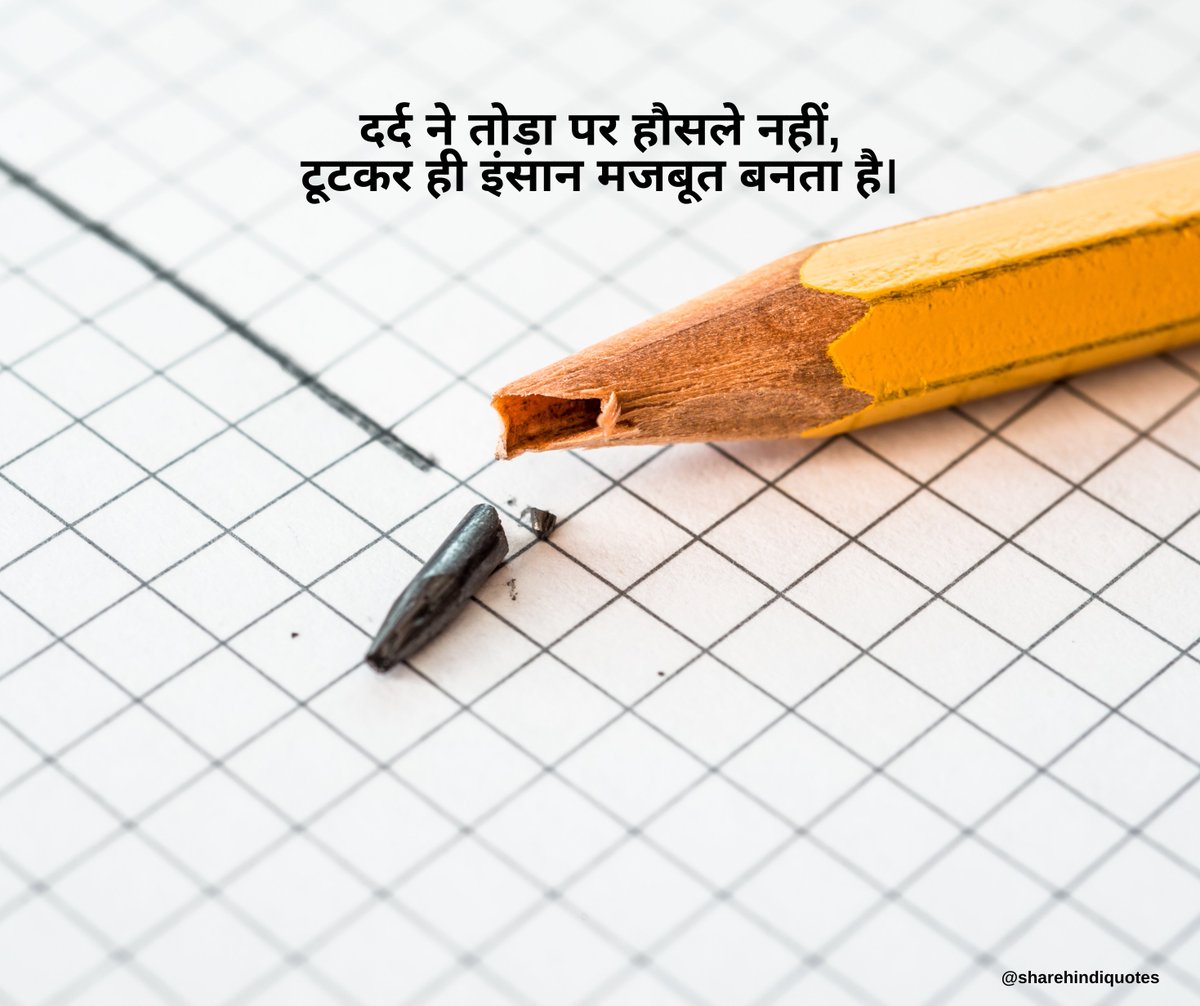 दर्द ने तोड़ा पर हौसले नहीं,
टूटकर ही इंसान मजबूत बनता है।
@sharehindiquotes